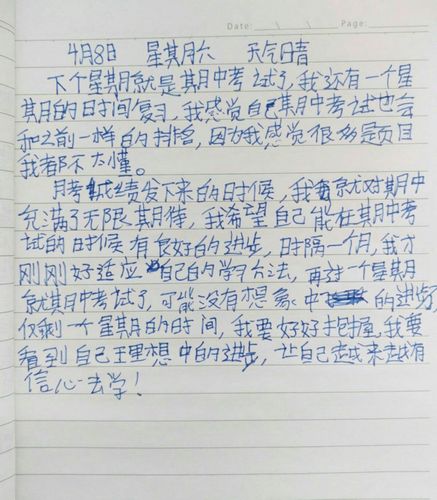 Date: Page:
4月8日 星期六 天气晴
下个星期就是期中考试了,我还有一个星
期的时间复习,我感觉自己期中考试也会
和之前一样的排名,因为我感觉很多题目
我都不太懂。
月考成绩发下来的时候,我就对期中
充满了无限期待,我希望自己能在期中考
试的时候有良好的进步,时隔一个月,我才
刚刚好适应自己的学习方法,再过一个星期
就期中考试了,可能没有想象中的进步,
仅剩一个星期的时间,我要好好把握,我要
看到自己理想中的进步,让自己越来越有
信心去学!